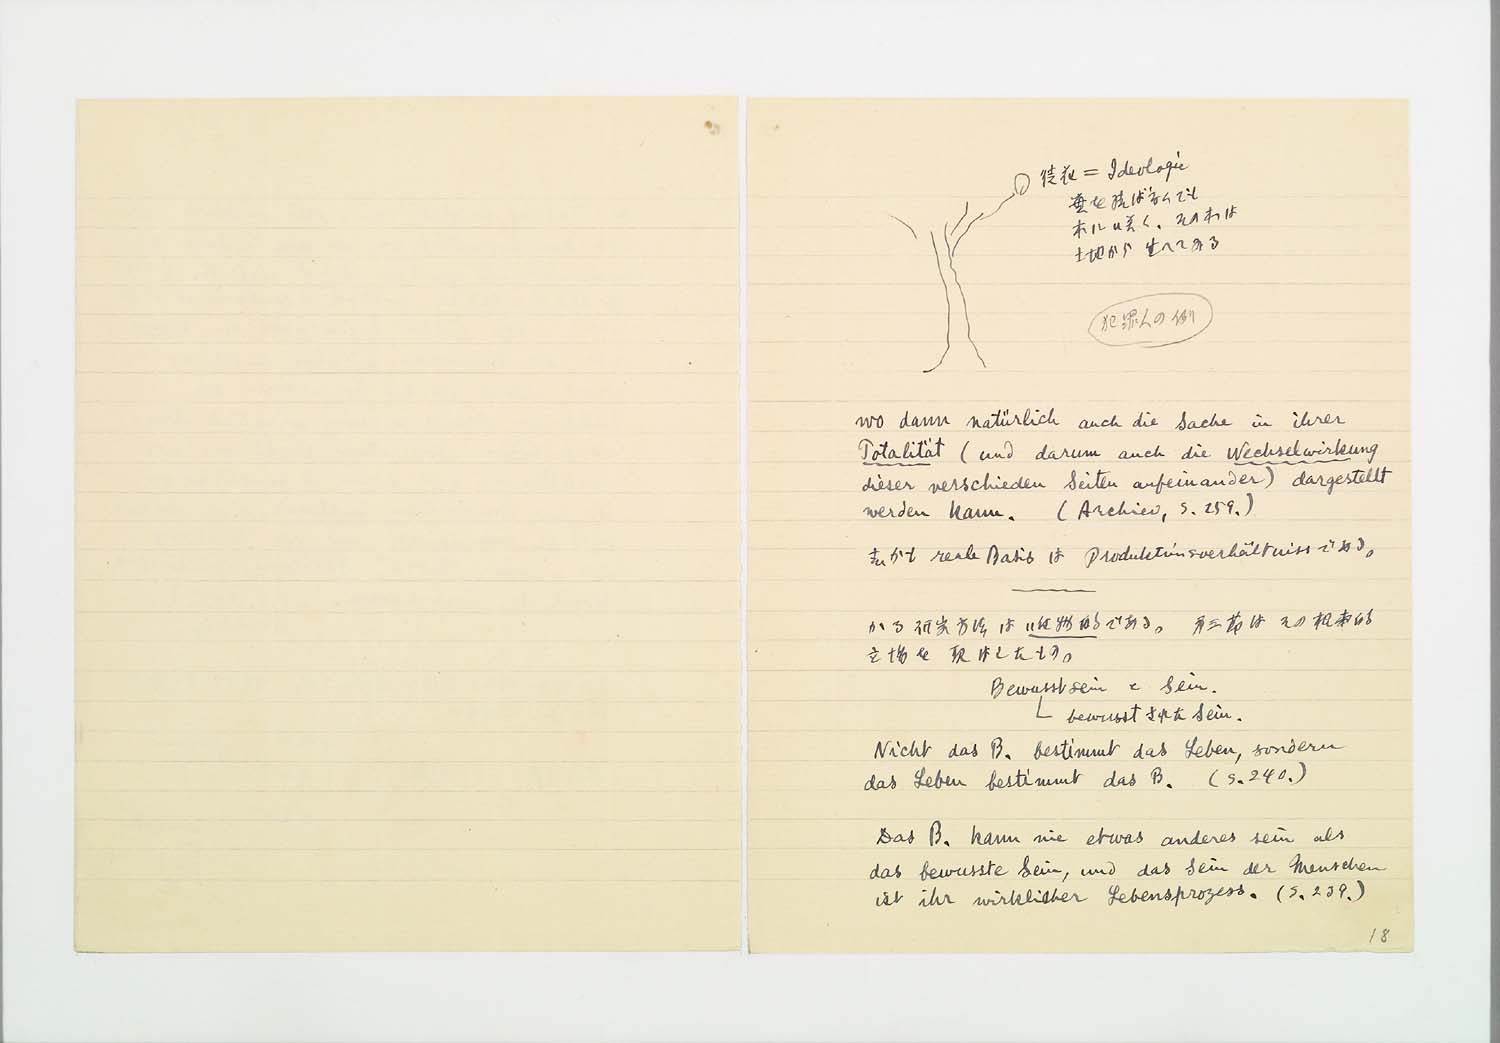 = Ideologie
木に咲く、それは
土地から生へてゐる
犯罪人の例
wo dann natürlich auch die Sache in ihrer
Totalität (und darum auch die Wechselwirkung
dieser verschieden Seiten aufeinander) dargestellt
werden kann. (Archiev, S. 259.)
reale Basis は Produktionsverhältniss である。
かゝる研究方法は唯物的である。第三節はその根本的
立場を
Bewusstsein と Sein.
bewusst された Sein.
Nicht das B. bestimmt das Leben, sondern
das Leben bestimmt das B. (S. 240.)
Das B. kann nie etwas anderes sein als
das bewusste Sein, und das Sein der Menschen
ist ihr wirklicher Lebensprozess. (S. 239.)
18